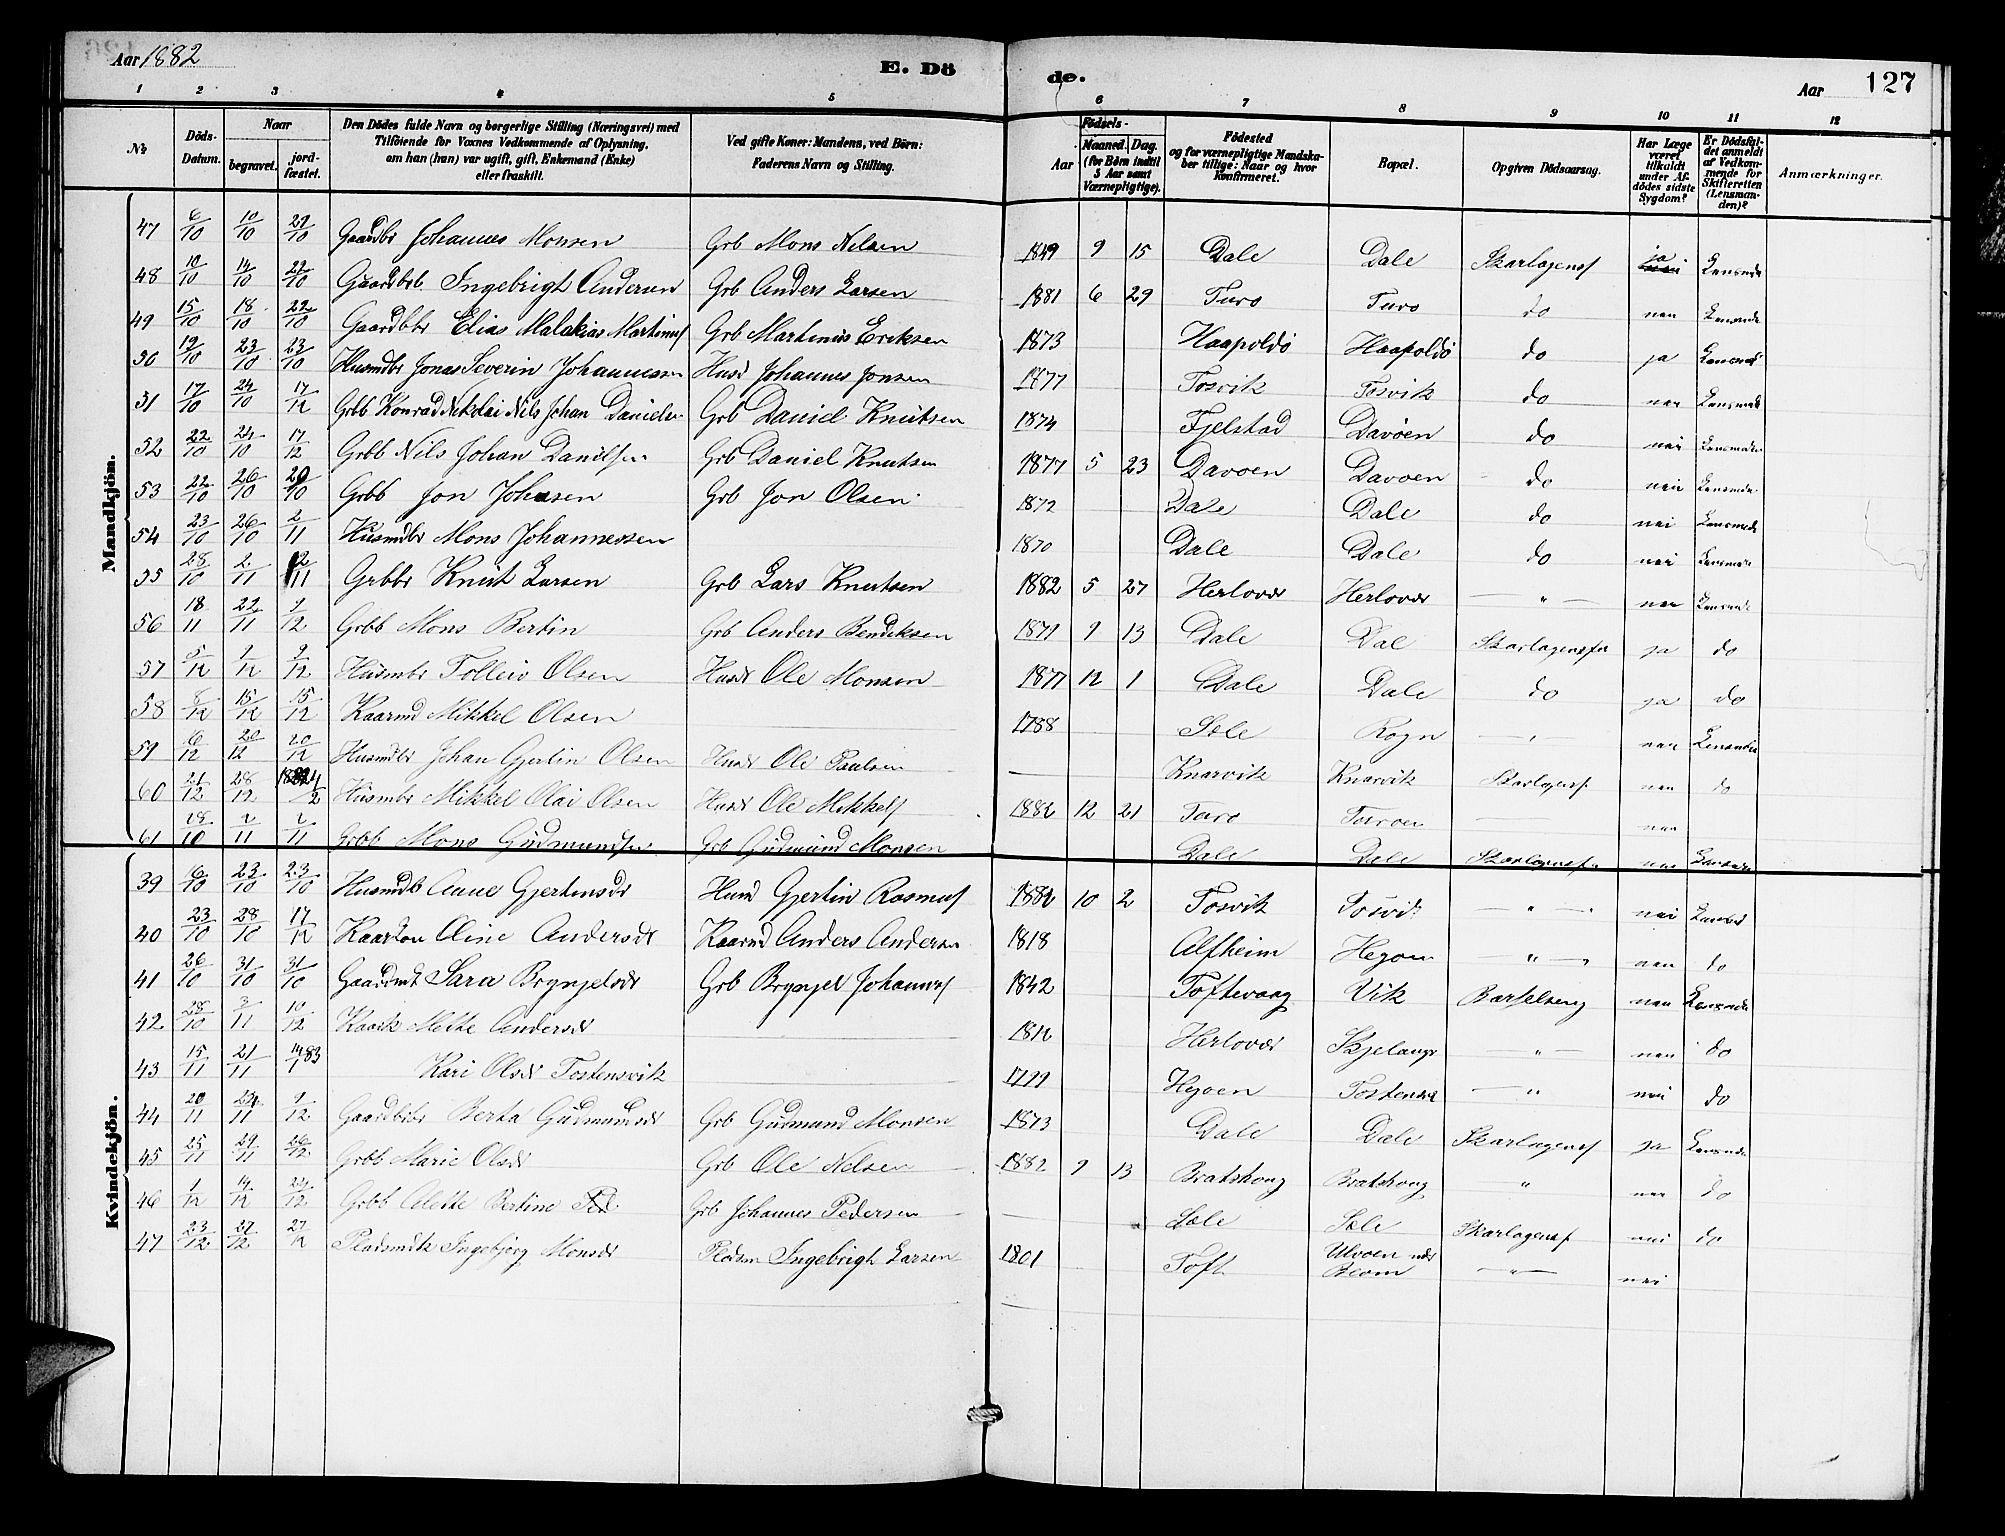 Aar 1882
E. Dö
de.
Aar
127
1 2 3 4 5 6 7 8 9 10 11 12
№
Döds-Datum.
Naar begravet. jordfæstet.
Den Dödes fulde Navn og borgerlige Stilling (Næringsvei) med Tilföiende for Voxnes Vedkommende af Oplysning, om han (hun) var ugift, gift, Enkemand (Enke) eller fraskilt.
Ved gifte Koner: Mandens, ved Börn: Faderens Navn og Stilling.
Födsels-
Aar Maaned. Dag. (for Börn indtil 5 Aar samt Værnepligtige).
Födested og for værnepligtige Mandskaber tillige: Naar og hvor konfirmeret.
Bopæl.
Opgiven Dödsaarsag.
Har Læge været tilkaldt under Afdödes sidste Sygdom?
Er Dödsfaldet anmeldt af Vedkommende for Skifteretten (Lensmanden)?
Anmærkninger.
Mandkjön.
47 6/10 10/10 22/10 Gaardbr Johannes Monsen Grb Mons Nelsen 1849 9 15 Dale Dale Skarlagensf ja Lensmde
48 10/10 14/10 22/10 Gaardbrb Ingebrigt Andersen Grb Anders Larsen 1881 6 29 Turo Turo do nei Lensmde
49 15/10 18/10 22/10 Gaardbbr Elias Malakias Martinus Grb Martinus Eriksen 1873 Haapoldö Haapoldö do ja Lensmd
50 19/10 23/10 23/10 Husmdbr Jonas Severin Johannessen Husd Johannes Jonsen 1877 Tosvik Tosvik do nei Lensmde
51 17/10 24/10 17/12 Grbb Konrad Nikolai Nils Johan Danielsn Grb Daniel Knutsen 1874 Fjelstad Davöen do nei Lensmde
52 22/10 24/10 17/12 Grbb Nils Johan Danilsen Grb Daniel Knutsen 1877 5 23 Davoen Davoen do nei Lensmde
53 22/10 26/10 29/10 Grbb Jon Johnsen Grb Jon Olsen 1872 Dale Dale do nei Lensmde
54 23/10 26/10 2/11 Husmdbr Mons Johannessen 1870 Dale Dale do nei Lensmde
55 28/10 2/11 12/11 Grbbr Knut Larsen Grb Lars Knutsen 1882 5 27 Herlovær Herlovær — " — nei Lensmde
56 18/11 22/11 9/12 Grbb Mons Bertin Grb Anders Bendiksen 1871 9 13 Dale Dal Skarlagensfr ja do
57 5/12 9/12 9/12 Husmbr Tolleiv Olsen Husd Ole Monsen 1877 12 1 Dale Dale do ja do
58 8/12 15/12 15/12 Kaarmd Mikkel Olsen 1788 Sole Rogn — " — nei Lensmde
59 6/12 20/12 20/12 Husmdbr Johan Gjertin Olsen Husd Ole Paulsen — Knarvik Knarvik Skarlagensf nei do
60 21/12 28/12 1883 4/2 Husmbr Mikkel Olai Olsen Husd Ole Mikkels 1882 12 21 Turo Turoen — nei
61 28/10 2/11 2/11 Grbb Mons Gudmundsen Grb Gudmund Monsen Dale Dale Skarlagensfr nei Lensmde
Kvindekjön.
39 6/10 23/10 23/10 Husmdb Anne Gjertinsdr Husd Gjertin Rasmus 1882 10 2 Tosvik Tosvik — " — nei Lensmd
40 23/10 28/10 17/12 Kaarkon Oline Andersdr Kaarmd Anders Andersn 1818 Alfheim Hegoen — " — nei do
41 26/10 31/10 31/10 Gaardmk Sara Brynjelsdr Grb Brynjel Johannes 1842 Toftevaag Vik Barselseng nei Lensmde
42 28/10 3/11 10/12 Kaark Mette Andersdr 1812 Herlovær Skjelanger — " — nei do
43 15/11 21/11 14/1 83 Kari Olsdr Tostensvik 1799 Hegoen Tostensvik — " nei do
44 20/11 24/11 9/12 Gaardbbr Berta Gudmundsdr Grb Gudmund Monsen 1873 Dale Dale Skarlagensf ja Lensmde
45 25/11 29/11 26/12 Grbb Marie Olsdr Grb Ole Nelsen 1882 9 13 Bratshoug Bratshoug " nei do
46 1/12 14/12 24/12 Grbb Alette Bertine Ped Grb Johannes Pedersen — Sole Sole Skarlagensf nei do
47 23/12 27/12 27/12 Pladsmdk Ingebjorg Monsdr Pladsm Ingebrigt Larsen 1801 Toft Ulvoen ndr Blom — " — nei